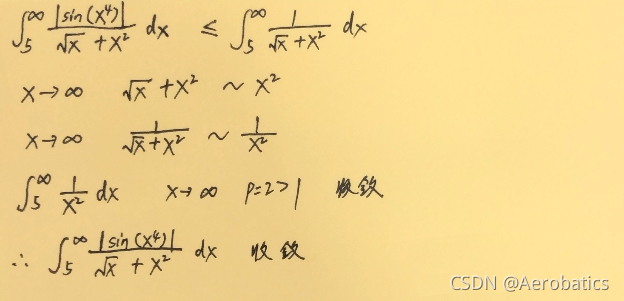 ∫₅^∞ |sin(x⁴)| / (√x + x²) dx ≤ ∫₅^∞ 1 / (√x + x²) dx
x→∞ √x + x² ~ x²
x→∞ 1 / (√x + x²) ~ 1 / x²
∫₅^∞ 1 / x² dx x→∞ p=2>1 收敛
∴ ∫₅^∞ |sin(x⁴)| / (√x + x²) dx 收敛
CSDN @Aerobatics